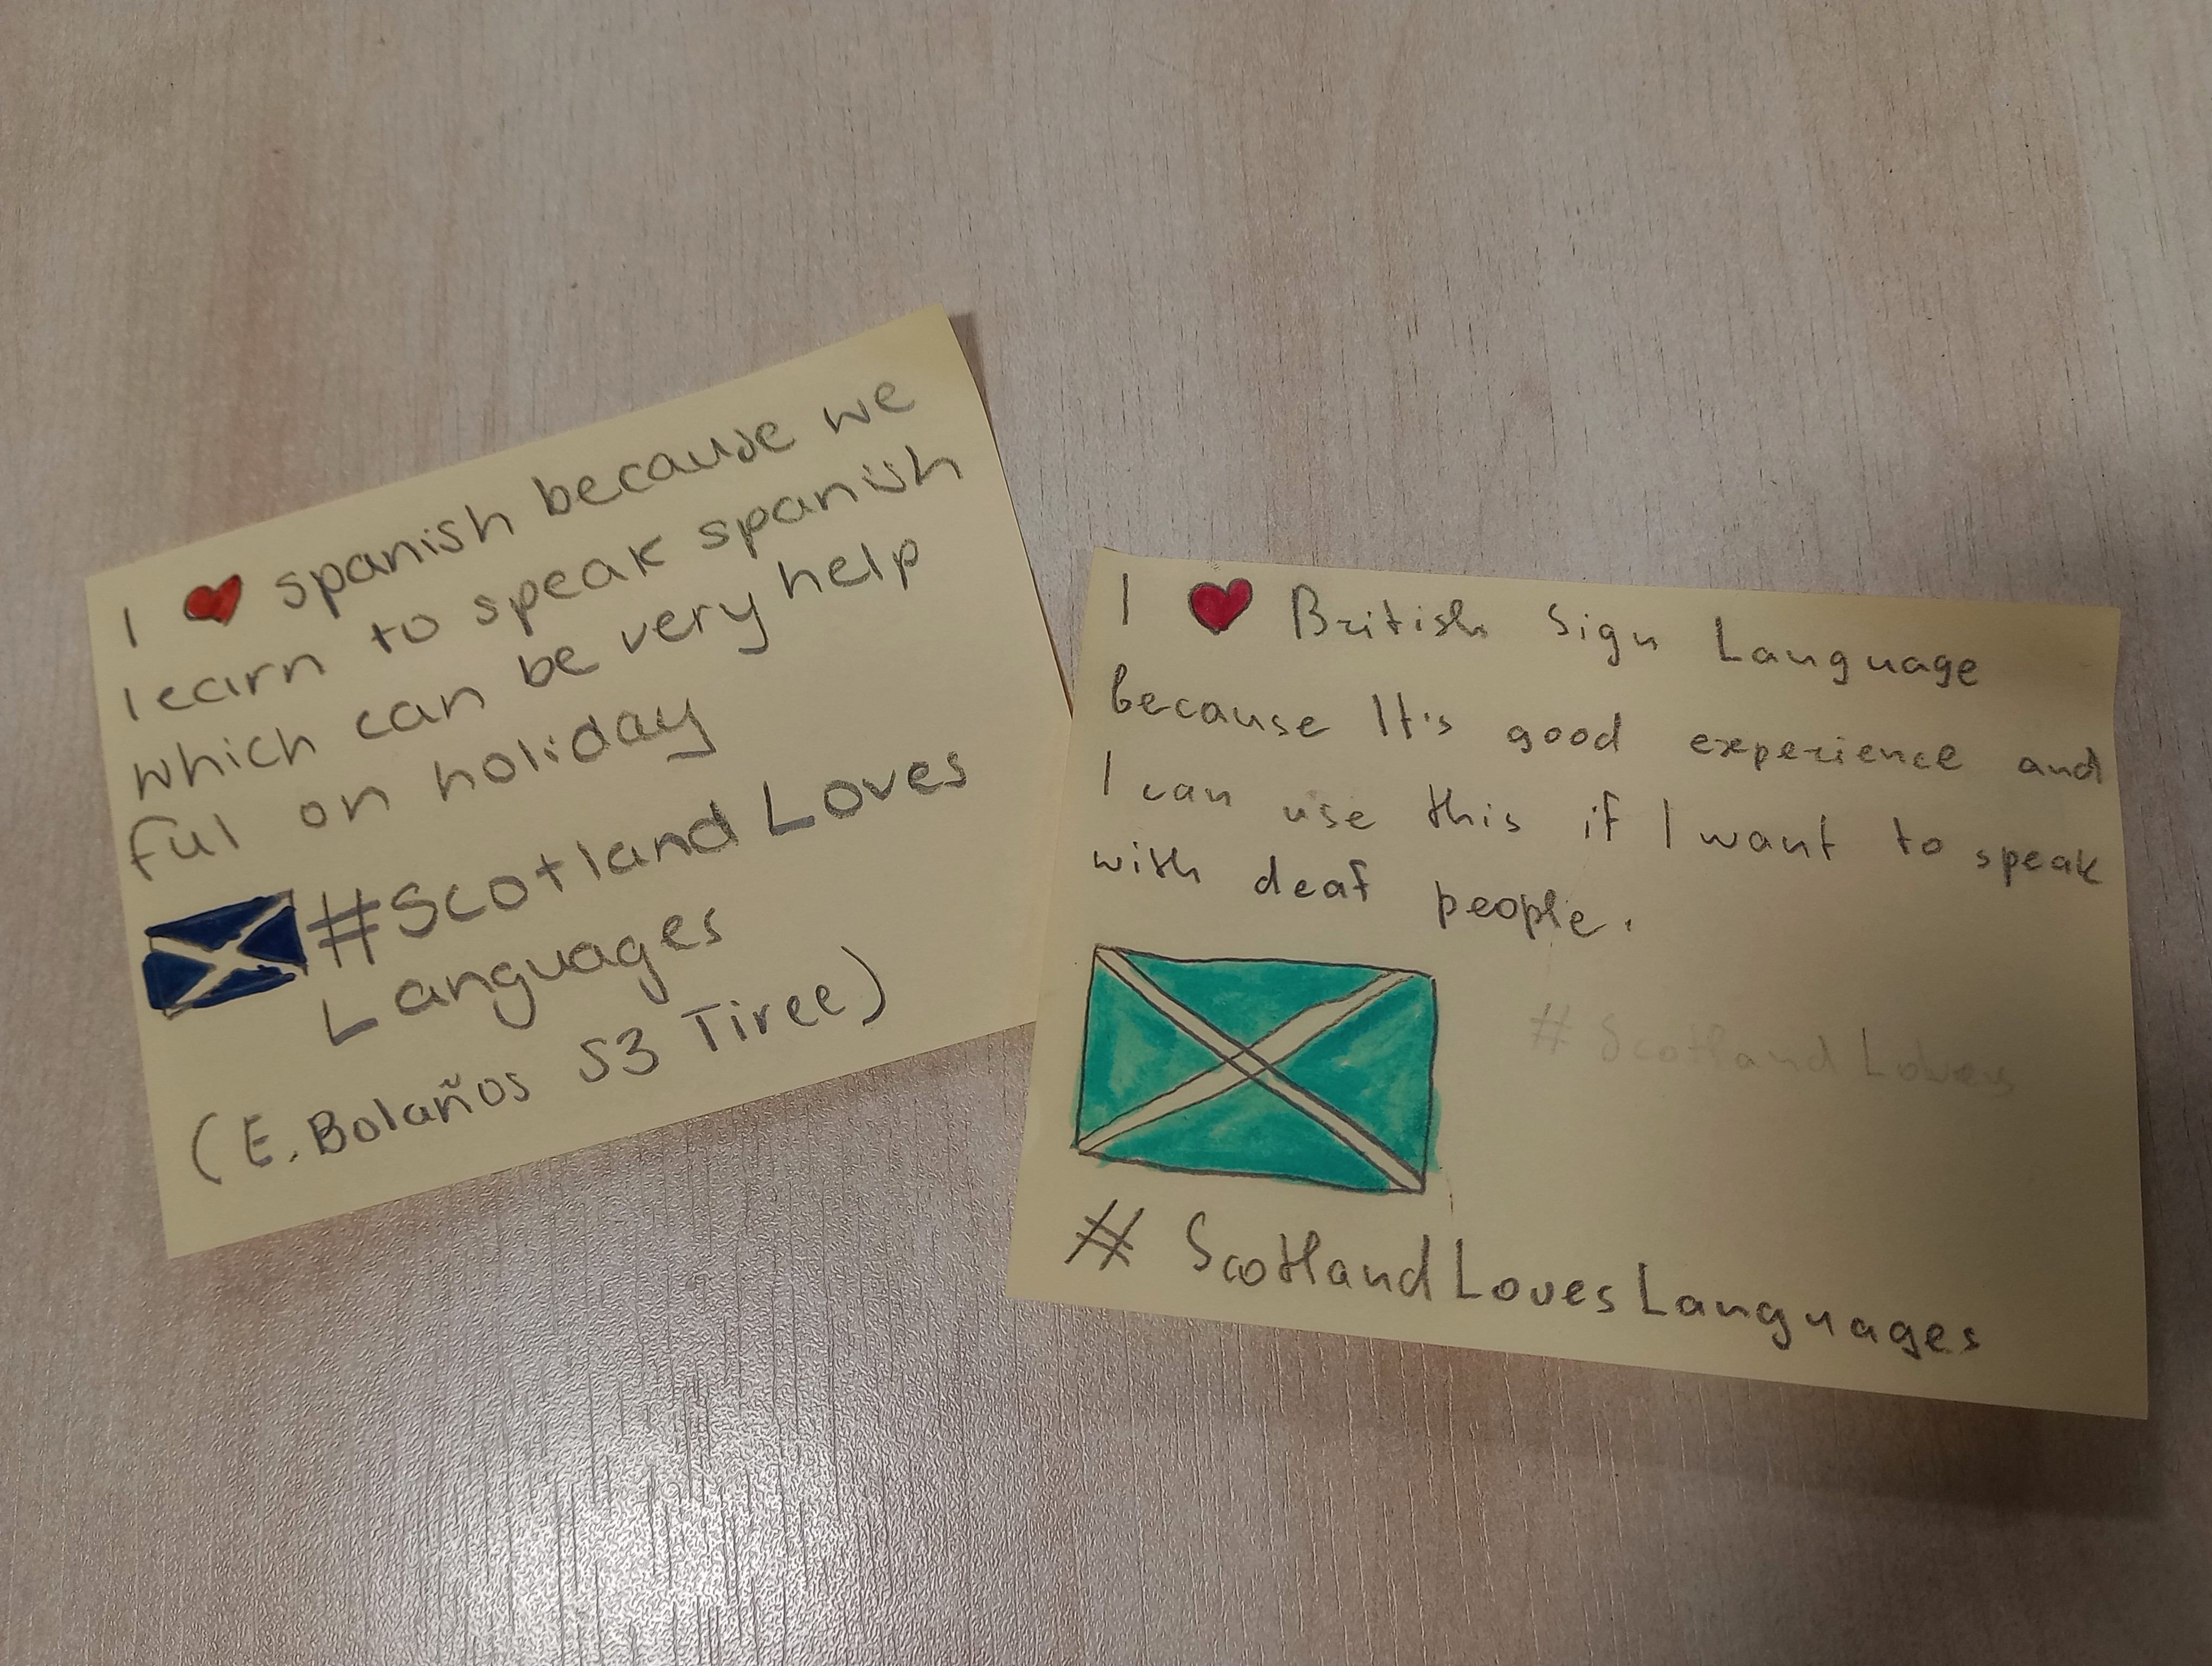 I ❤ spanish because we
learn to speak spanish
which can be very help
ful on holiday
#Scotland Loves
Languages
(E. Bolaños S3 Tiree)
I ❤ British Sign Language
because It's good experience and
I can use this if I want to speak
with deaf people.
# Scotland Loves
# ScotlandLovesLanguages